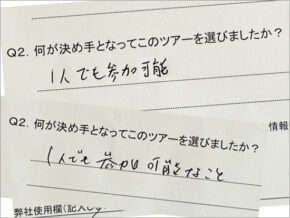 Q2. 何が決め手となってこのツアーを選びましたか？
1人でも参加可能
情報
Q2. 何が決め手となってこのツアーを選びましたか？
1人でも参加可能なこと
弊社使用欄（記入し